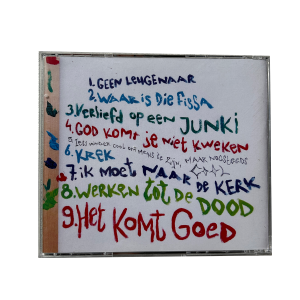 1. GEEN LEUGENAAR
2. WAAR is Die Fissa
3. VERLiEfd op een JUNKi
4. GOD KOMT je Niet KWEKEN
5. Less
MAAR NOGSTEEDS
6. KREK
7. iK MOET NAAR DE KERK
8. WERKEN tot DE DOOD
9. Het KOMT GOED